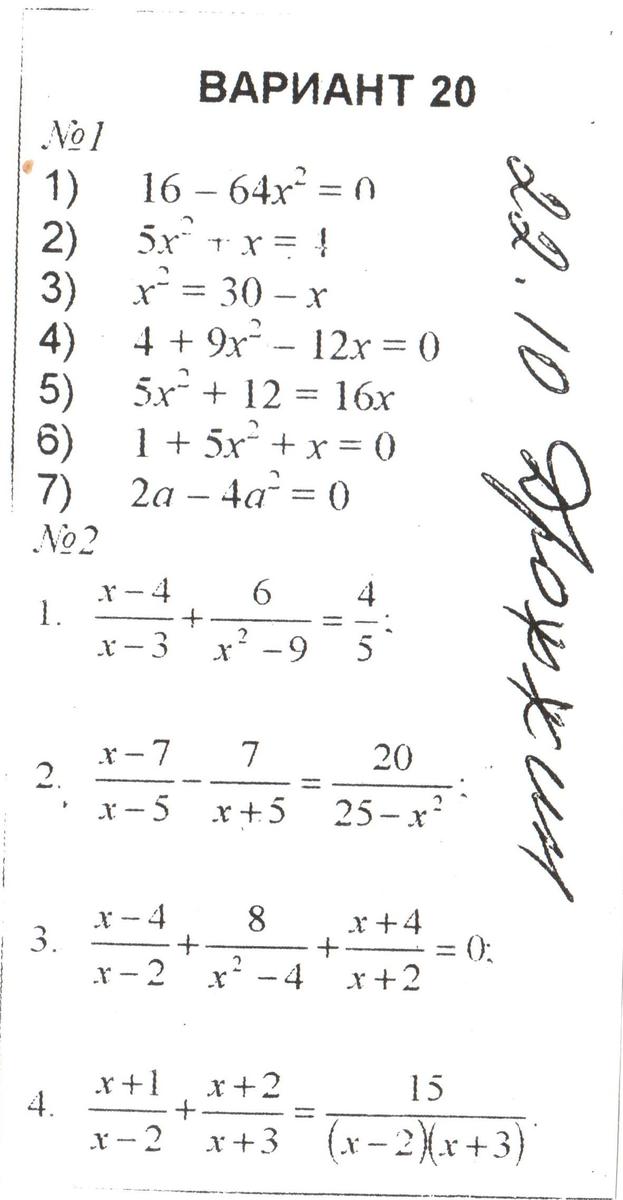 ВАРИАНТ 20
№1
1) 16 – 64x² = 0
2) 5x² + x = 4
3) x² = 30 – x
4) 4 + 9x² – 12x = 0
5) 5x² + 12 = 16x
6) 1 + 5x² + x = 0
7) 2a – 4a² = 0
№2
1. (x–4)/(x–3) + 6/(x²–9) = 4/5;
2. (x–7)/(x–5) – 7/(x+5) = 20/(25–x²);
3. (x–4)/(x–2) + 8/(x²–4) + (x+4)/(x+2) = 0;
4. (x+1)/(x–2) + (x+2)/(x+3) = 15/((x–2)(x+3)).
22.10 Дрожжин